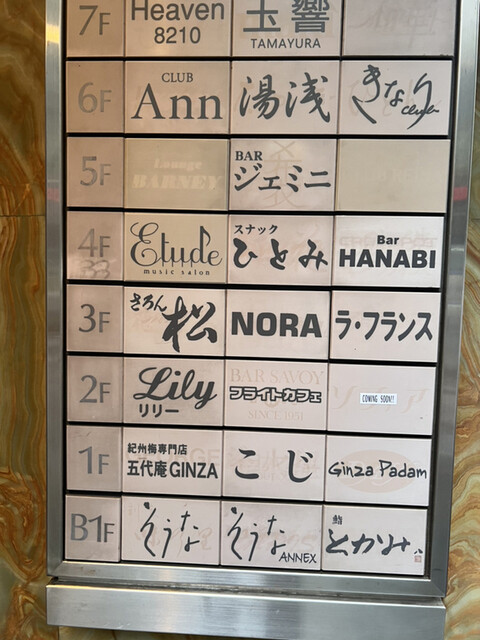 7F
Heaven
8210
玉響
TAMAYURA
6F
CLUB
Ann
湯浅
きなり
club
5F
Lounge
BARNEY
BAR
ジェミニ
4F
Etude
music salon
スナック
ひとみ
Bar
HANABI
3F
さろん
松
NORA
ラ・フランス
2F
Lily
リリー
BAR SAVOY
フライトカフェ
SINCE 1951
COMING SOON!!
1F
紀州梅専門店
五代庵 GINZA
こじ
Ginza Padam
B1F
そうな
そうな
ANNEX
鮨
とかみ